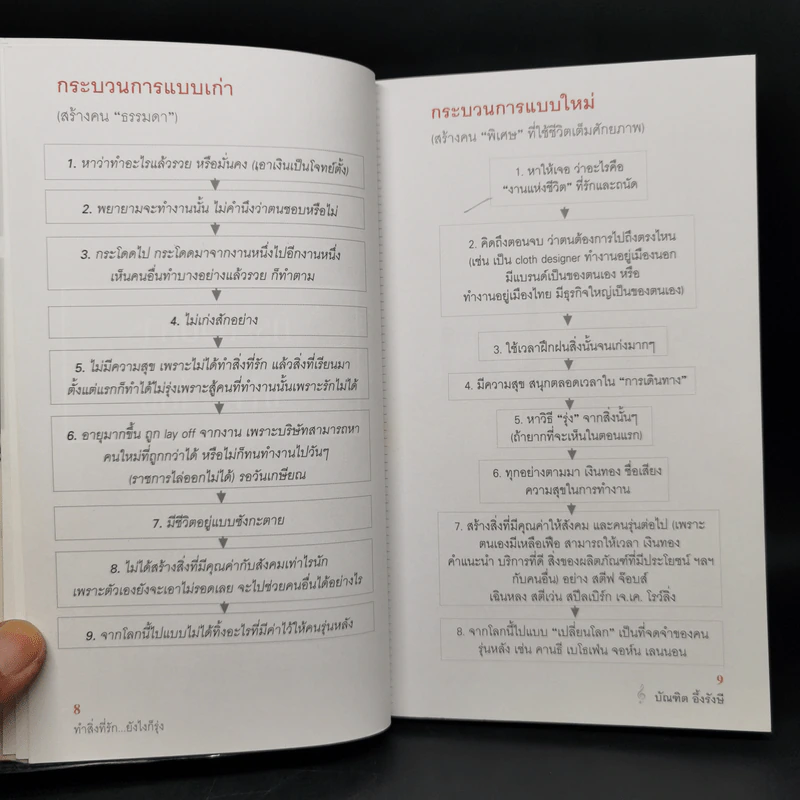 กระบวนการแบบเก่า
(สร้างคน “ธรรมดา”)
1. หาว่าทำอะไรแล้วรวย หรือมั่นคง (เอาเงินเป็นโจทย์ตั้ง)
2. พยายามจะทำงานนั้น ไม่คำนึงว่าตนชอบหรือไม่
3. กระโดดไป กระโดดมาจากงานหนึ่งไปอีกงานหนึ่ง
เห็นคนอื่นทำบางอย่างแล้วรวย ก็ทำตาม
4. ไม่เก่งสักอย่าง
5. ไม่มีความสุข เพราะไม่ได้ทำสิ่งที่รัก แล้วสิ่งที่เรียนมา
ตั้งแต่แรกก็ทำได้ไม่รุ่งเพราะสู้คนที่ทำงานนั้นเพราะรักไม่ได้
6. อายุมากขึ้น ถูก lay off จากงาน เพราะบริษัทสามารถหา
คนใหม่ที่ถูกกว่าได้ หรือไม่ก็ทนทำงานไปวันๆ
(ราชการไล่ออกไม่ได้) รอวันเกษียณ
7. มีชีวิตอยู่แบบซังกะตาย
8. ไม่ได้สร้างสิ่งที่มีคุณค่ากับสังคมเท่าไรนัก
เพราะตัวเองยังจะเอาไม่รอดเลย จะไปช่วยคนอื่นได้อย่างไร
9. จากโลกนี้ไปแบบไม่ได้ทิ้งอะไรที่มีค่าไว้ให้คนรุ่นหลัง
8
ทำสิ่งที่รัก...ยังไงก็รุ่ง
กระบวนการแบบใหม่
(สร้างคน “พิเศษ” ที่ใช้ชีวิตเต็มศักยภาพ)
1. หาให้เจอ ว่าอะไรคือ
“งานแห่งชีวิต” ที่รักและถนัด
2. คิดถึงตอนจบ ว่าตนต้องการไปถึงตรงไหน
(เช่น เป็น cloth designer ทำงานอยู่เมืองนอก
มีแบรนด์เป็นของตนเอง หรือ
ทำงานอยู่เมืองไทย มีธุรกิจใหญ่เป็นของตนเอง)
3. ใช้เวลาฝึกฝนสิ่งนั้นจนเก่งมากๆ
4. มีความสุข สนุกตลอดเวลาใน “การเดินทาง”
5. หาวิธี “รุ่ง” จากสิ่งนั้นๆ
(ถ้ายากที่จะเห็นในตอนแรก)
6. ทุกอย่างตามมา เงินทอง ชื่อเสียง
ความสุขในการทำงาน
7. สร้างสิ่งที่มีคุณค่าให้สังคม และคนรุ่นต่อไป (เพราะ
ตนเองมีเหลือเฟือ สามารถให้เวลา เงินทอง
คำแนะนำ บริการที่ดี สิ่งของผลิตภัณฑ์ที่มีประโยชน์ ฯลฯ
กับคนอื่น) อย่าง สตีฟ จ๊อบส์
เฉินหลง สตีเว่น สปีลเบิร์ก เจ.เค. โรว์ลิ่ง
8. จากโลกนี้ไปแบบ “เปลี่ยนโลก” เป็นที่จดจำของคน
รุ่นหลัง เช่น คานธี เบโธเฟน จอห์น เลนนอน
9
บัณฑิต อึ้งรังษี